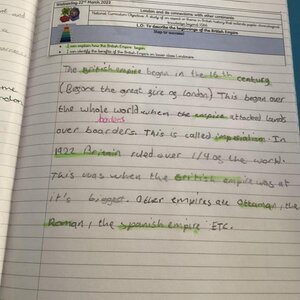 Wednesday 22nd March 2023
London and its connections with other continents
L.O. To describe the beginnings of the British Empire
Steps for success!
I can explain how the British Empire began.
I can identify the benefits of the British Empire on lower class Londoners.
The British empire began in the 16th century
(Before the great fire of London) This began over
the whole world when the empire attacked lands
borders
over boarders. This is called imperialism. In
1922 Britain ruled over 1/4 of the world.
This was when the British empire was at
it's biggest. Other empires are Ottoman, the
Roman, the spanish empire ETC.